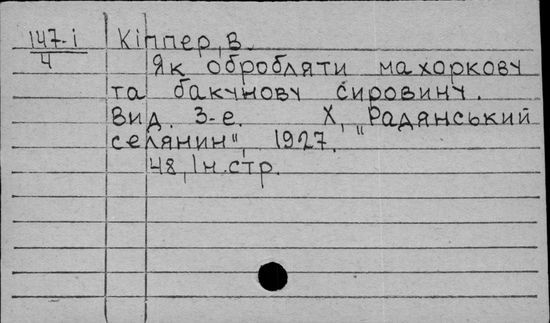 147-і Кіппер, В.
4
Як обробляти махоркову
та бакунову сировину.
Вид. 3-е. Х, „Радянський
селянин", 1927.
48, Ін. стр.